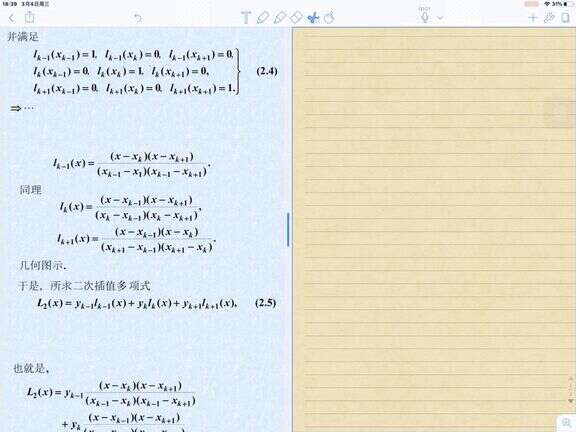 18:39 3月4日周三
31%
00:01
并满足
l_{k-1}(x_{k-1})=1, l_{k-1}(x_k)=0, l_{k-1}(x_{k+1})=0,
l_k(x_{k-1})=0, l_k(x_k)=1, l_k(x_{k+1})=0, (2.4)
l_{k+1}(x_{k-1})=0, l_{k+1}(x_k)=0, l_{k+1}(x_{k+1})=1.
⇒⋯
l_{k-1}(x)=\frac{(x-x_k)(x-x_{k+1})}{(x_{k-1}-x_1)(x_{k-1}-x_{k+1})}.
同理
l_k(x)=\frac{(x-x_{k-1})(x-x_{k+1})}{(x_k-x_{k-1})(x_k-x_{k+1})},
l_{k+1}(x)=\frac{(x-x_{k-1})(x-x_k)}{(x_{k+1}-x_{k-1})(x_{k+1}-x_k)}.
几何图示.
于是，所求二次插值多项式
L_2(x)=y_{k-1}l_{k-1}(x)+y_k l_k(x)+y_{k+1}l_{k+1}(x), (2.5)
也就是，
L_2(x)=y_{k-1}\frac{(x-x_k)(x-x_{k+1})}{(x_{k-1}-x_k)(x_{k-1}-x_{k+1})}
+y_k\frac{(x-x_{k-1})(x-x_{k+1})}{(x_k-x_{k-1})(x_k-x_{k+1})}